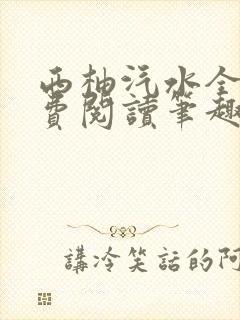 西柚汽水全
費閱讀筆趣
講冷笑話的阿